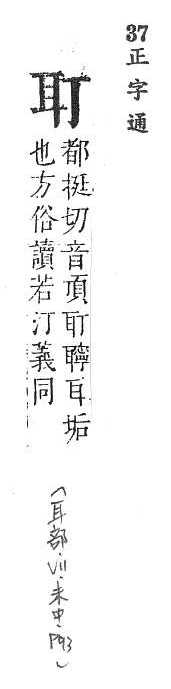 37正字通
耵
都挺切音頂耵聹耳垢
也方俗讀若汀義同
(耳部.VII.未中.P93)